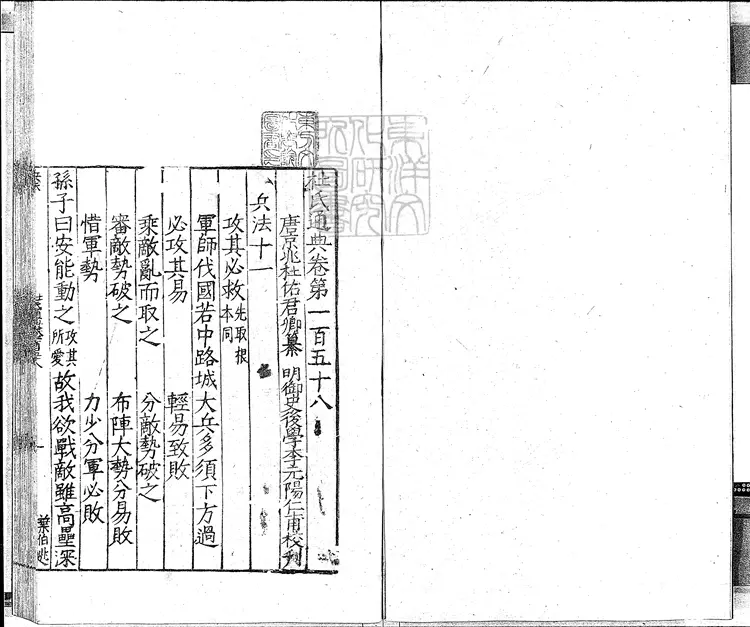 杜氏通典卷第一百五十八
唐京兆杜佑君卿纂 明御史後學李元陽仁甫校刋
兵法十一
攻其必救先取根本同
軍師伐國若中路城大兵多須下方過
必攻其易 輕易致敗
乘敵亂而取之 分敵勢破之
審敵勢破之 布陣大勢分易敗
惜軍勢 力少分軍必敗
孫子曰安能動之攻其所愛故我欲戰敵雖高壘深
葉伯